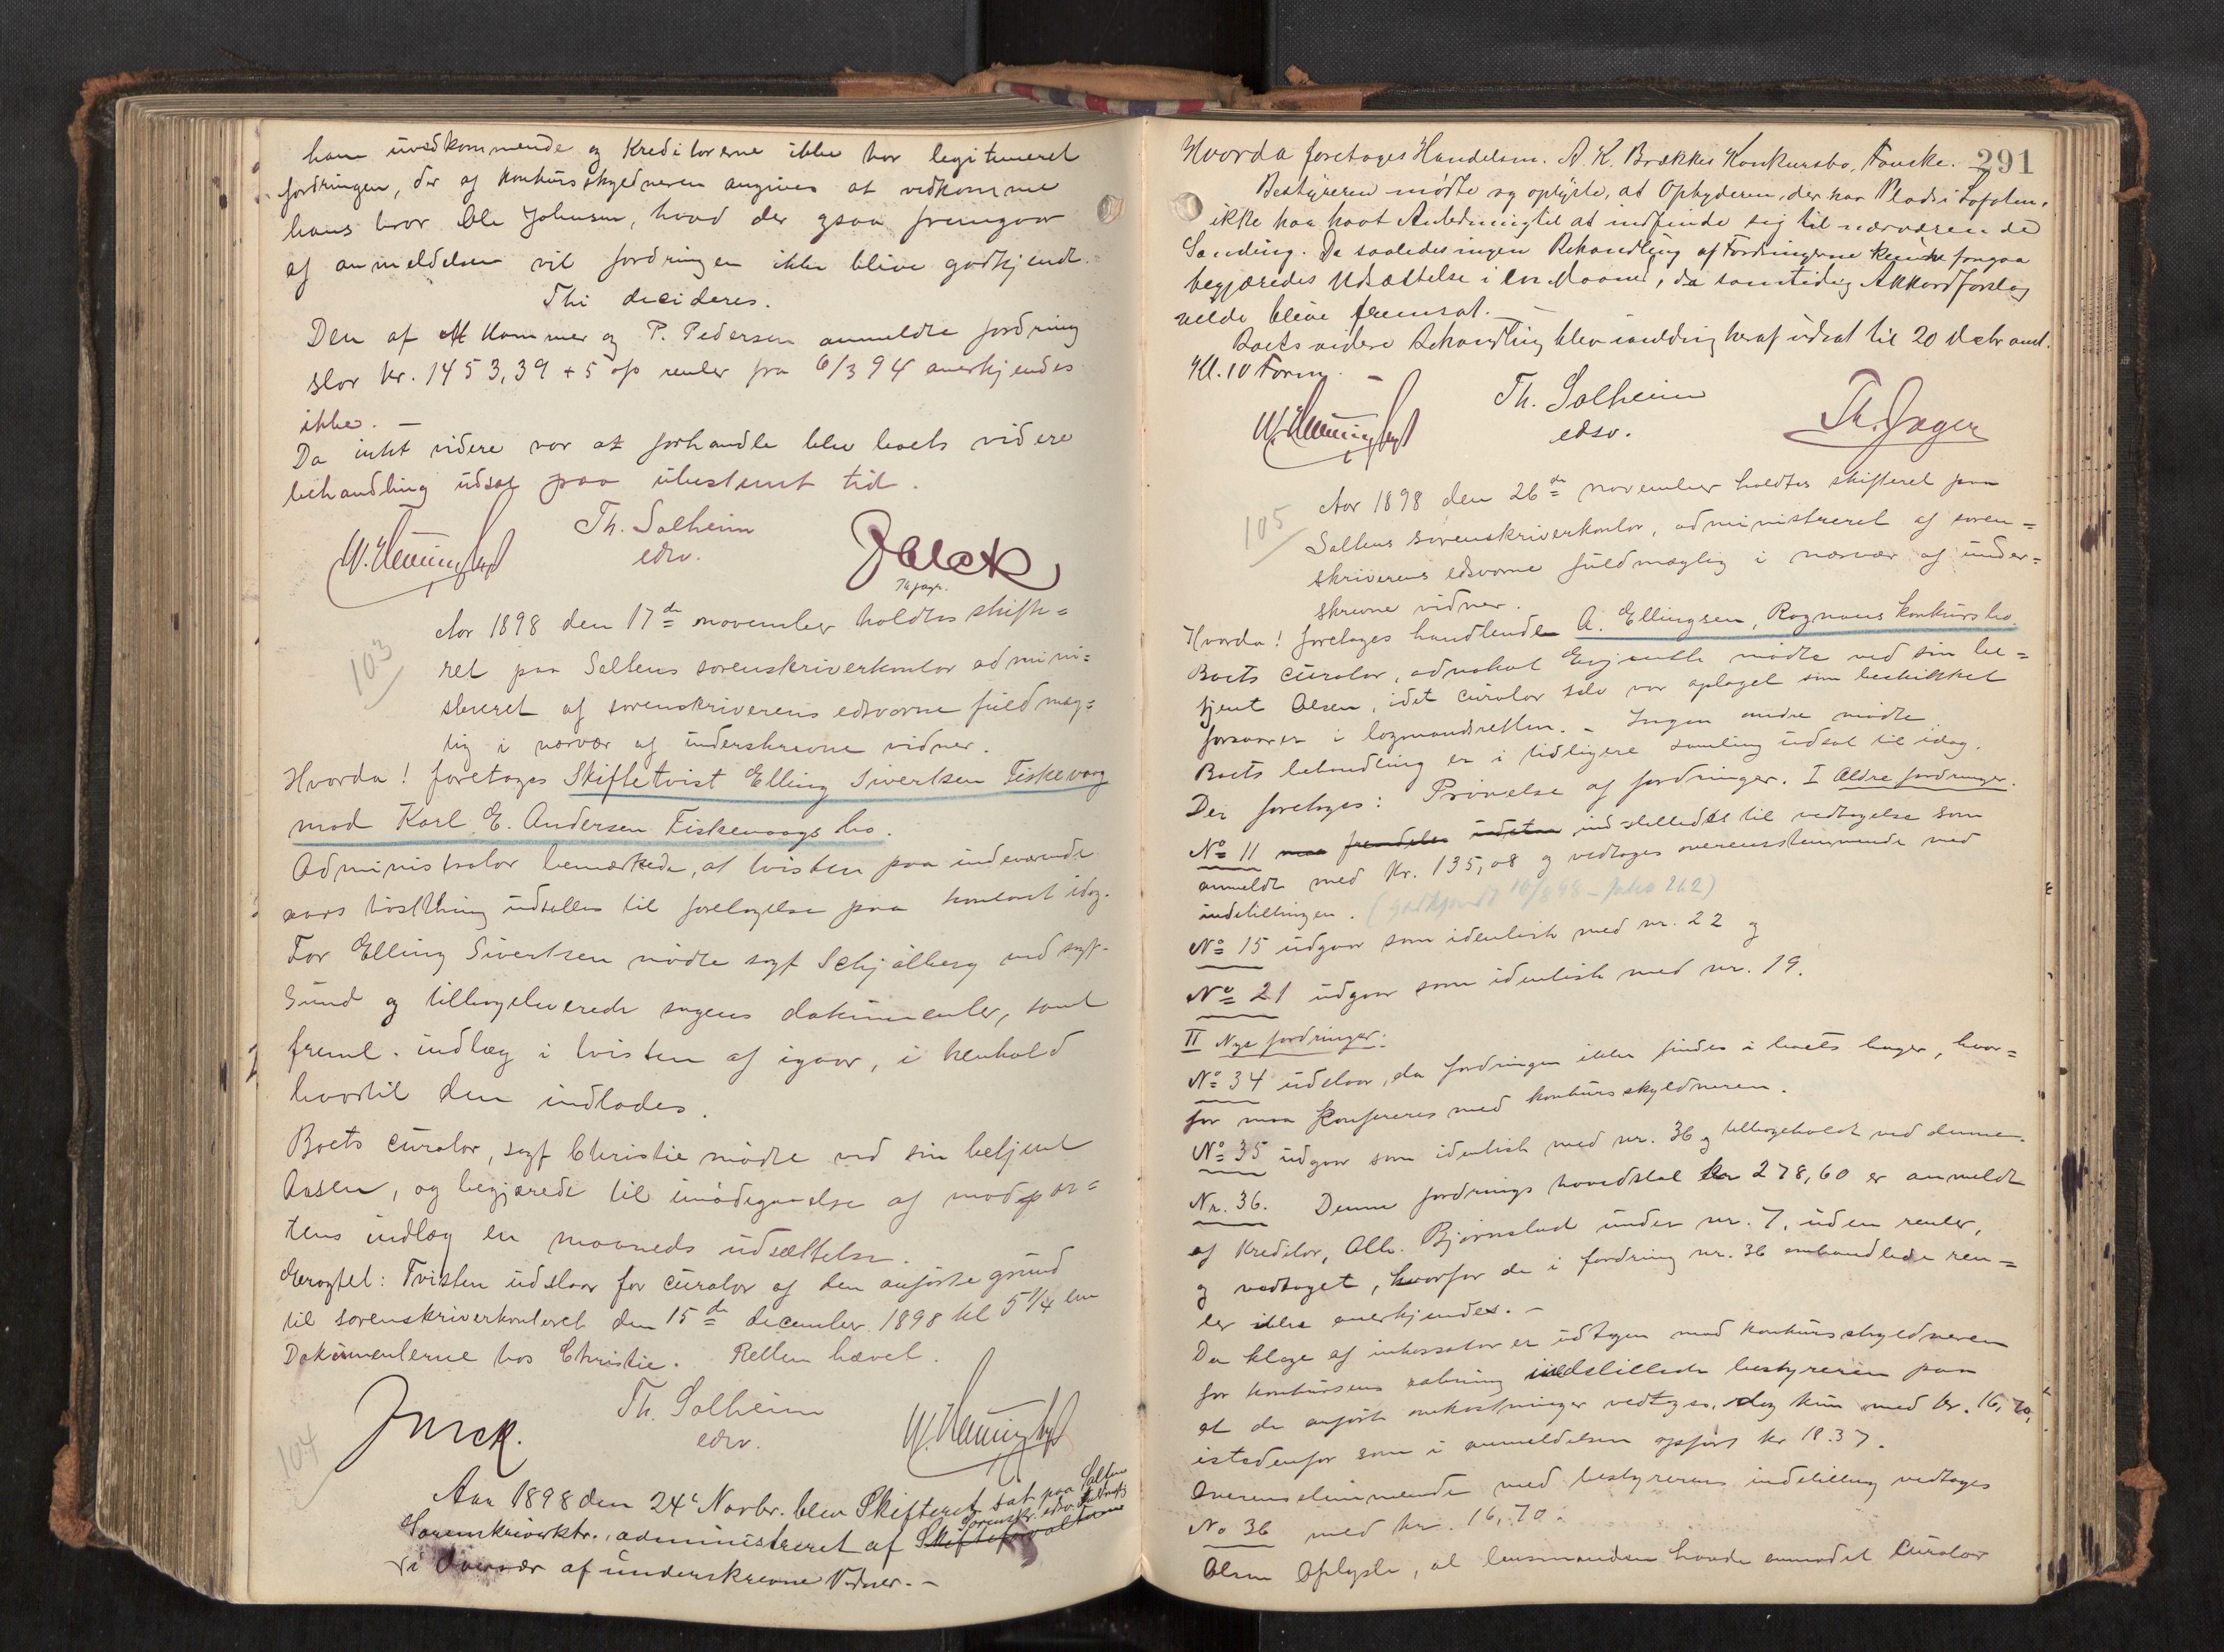 ham uvedkommende og Kreditorerne ikke har legitimeret
fordringen, der af konkursskyldneren angives at vedkomme
hans bror Ole Johnsen, hvad der ogsaa fremgaar
af anmeldelsen vil fordringen ikke blive godkjendt.
Thi decideres.
Den af M Hammer og P. Pedersen anmeldte fordring
stor kr. 1453,39 + 5 o/o renter fra 6/3 94 anerkjendes
ikke. —
Da intet videre var at forhandle blev boets videre
behandling udsat paa ubestemt tid.
Th. Solheim
edsv.
Th Jager.
103
Aar 1898 den 17de november holdtes skifte=
ret paa Saltens sorenskriverkontor admini=
streret af sorenskriverens edsvorne fuldmæg=
tig i nærvær af underskrevne vidner.
Hvorda! foretoges Skiftetvist Elling Sivertsen Fiskevaag
mod Karl E. Andersen Fiskevaags bo.
Administrator bemærkede, at tvisten paa indeværende
aars høstthing udsattes til foretagelse paa kontoret idag.
For Elling Sivertsen mødte sagf Schjølberg ved sagf.
Sund og tilbageleverede sagens dokumenter, samt
freml. indlæg i tvisten af igaar, i henhold
hvortil den indlades.
Boets curator, sagf Christie mødte ved sin betjent
Aasen, og begjærede til imødegaaelse af modpar=
tens indlæg en maaneds udsættelse.
Eragtet: Tvisten udstaar for curator af den anførte grund
til sorenskriverkontoret den 15de december 1898 kl 5 1/4 em
Dokumenterne hos Christie. Retten hævet.
Th. Solheim
edsv.
104
Aar 1898 den 24' Novbr. blev Skifteret sat paa Salten
Sorenskriverktr., administreret af Skifteforvalteren
Sorenskr. edsv. Fuldmægt.
i Overvær af underskrevne Vidner. —
291
Hvorda foretoges Handelsm. A. K. Brækkes Konkursbo, Fauske.
Bestyreren mødte og oplyste, at Opbyderen, der har Plads i Lofoten,
ikke har havt Anledning til at indfinde sig til nærværende
Samling. Da saaledes ingen Behandling af Fordringerne kunde foregaa
begjæredes Udsættelse i en Maaned, da samtidig Akkordforslag
vilde blive fremsat. —
Boets videre Behandling blev i anledning heraf udsat til 20 Decbr anst.
Kl. 10 Form. —
Th. Solheim
edsv.
Th. Jager
105
Aar 1898 den 26de november holdtes skifteret paa
Saltens sorenskriverkontor, administreret af soren=
skriverens edsvorne fuldmægtig i nærvær af under=
skrevne vidner.
Hvorda! foretoges handlende A. Ellingsen, Rognans konkursbo.
Boets curator, advokat Evjenth mødte ved sin be=
tjent Olsen, idet curator selv var optaget som beskikket
forsvarer i lagmandsretten. — Ingen andre mødte.
Boets behandling er i tidligere samling udsat til idag.
Der foretoges: Prøvelse af fordringer. I Ældre fordringer.
No 11 maa fremdeles udstaa indstilledes til vedtagelse som
anmeldt med Kr. 135,08 og vedtoges overensstemmende med
indstillingen. (godkjendt 10/8 98 - folio 262)
No 15 udgaar som identisk med nr. 22 og
No 21 udgaar som identisk med nr. 19.
II Nye fordringer.
No 34 udstaar, da fordringen ikke findes i boets bøger, hvor=
for maa konfereres med konkursskyldneren.
No 35 udgaar som identisk med nr. 36 og tilbageholdt ved denne.
Nr. 36. Denne fordrings hovedstol kr 278,60 er anmeldt
af Kreditor, Olb. Bjørnstad under nr. 7, uden renter,
og vedtaget, hvorfor de i fordring nr. 36 omhandlede ren=
ter ikke anerkjendes. —
Da klage af inkassator er udtagen mod konkursskyldneren
før konkursens aabning indstillede bestyreren paa
at de anførte omkostninger vedtages, dog kun med kr. 16,70,
istedenfor som i anmeldelsen opført kr 18.37.
Overensstemmende med bestyrerens indstilling vedtoges
No 36 med kr. 16,70.
Olsen oplyste, at lensmanden havde anmodet curator